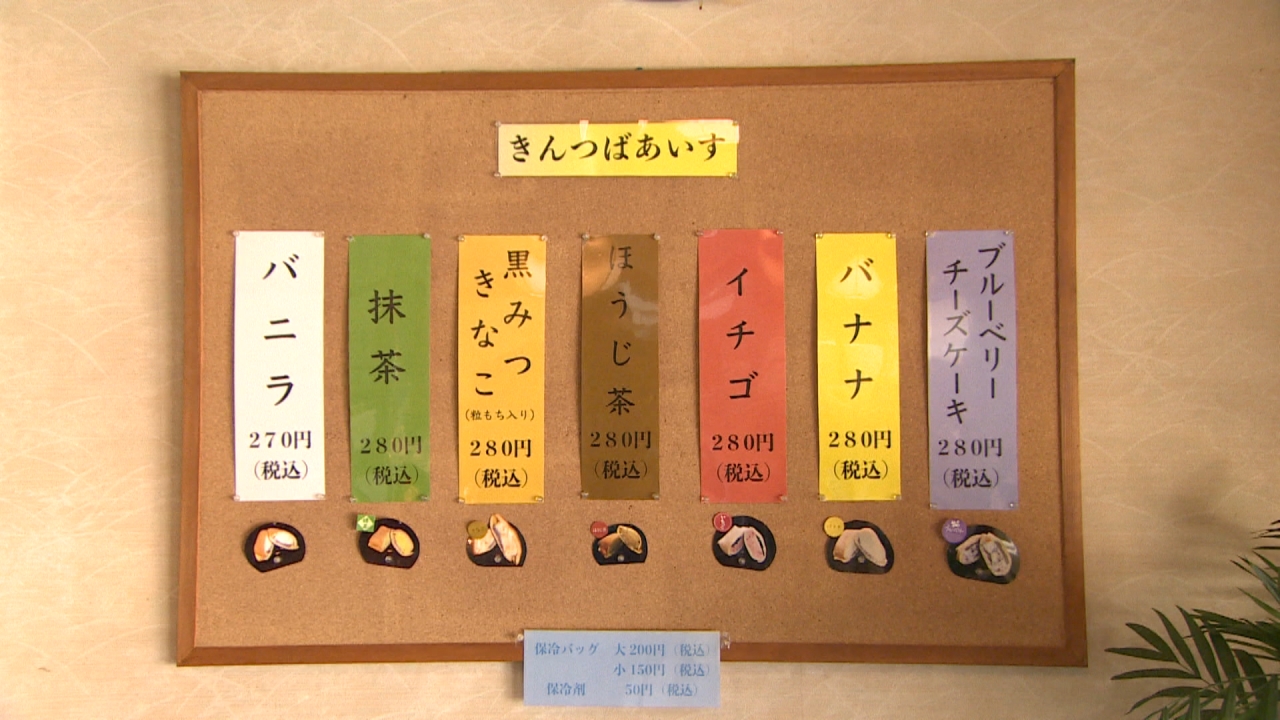 きんつばあいす
バニラ
270円
(税込)
抹茶
280円
(税込)
黒みつ
きなこ
(粒もち入り)
280円
(税込)
ほうじ茶
280円
(税込)
イチゴ
280円
(税込)
バナナ
280円
(税込)
ブルーベリー
チーズケーキ
280円
(税込)
保冷バッグ 大200円(税込)
小150円(税込)
保冷剤 50円(税込)